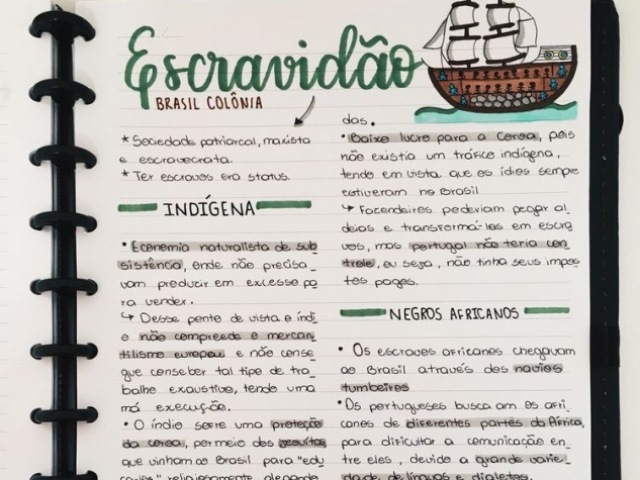 Escravidão
BRASIL COLÔNIA
* Sociedade patriarcal, maxista
e escravocrata.
* Ter escravos era status.
INDÍGENA
• Economia naturalista de sub_
sistência, onde não precisa_
vam produzir em excesso pa
ra vender.
↳ Desse ponto de vista o índi_
o não compreede o mercan_
tilismo europeu e não conse_
gue conseber tal tipo de tra_
balho exaustivo, tendo uma
má execução.
• O índio sofre uma proteção
da coroa, por meio dos jesuítas
que vinham ao Brasil para "edu
religiosamente
das.
• Baixo lucro para a Coroa, pois
não existia um tráfico indígena,
tendo em vista que os ídios sempre
estiveram no Brasil
↳ Fazendeiros poderiam pegar al_
deias e transformá-los em escra
vos, mas portugal não teria con_
trole, ou seja, não tinha seus impos
tos pagos.
NEGROS AFRICANOS
• Os escravos africanos chegavam
ao Brasil através dos navios
tumbeiros
• Os portugueses buscam os afri_
canos de diferentes partes da África,
para dificultar a comunicação en_
tre eles, devido a grande varie_
dade de línguas e dialetos.